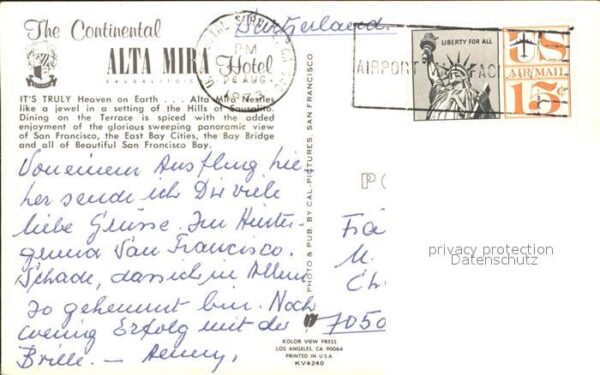 The Continental
ALTA MIRA
SAUSALITO
Hotel
IT'S TRULY Heaven on Earth . . . Alta Mira Nestles
like a jewel in a setting of the Hills of Sausalito.
Dining on the Terrace is spiced with the added
enjoyment of the glorious sweeping panoramic view
of San Francisco, the East Bay Cities, the Bay Bridge
and all of Beautiful San Francisco Bay.
Von einem Ausflug hie-
her sende ich Dir viele
liebe Grüsse. Im Hinter-
grund San Francisco.
Schade, dass ich in Allem
so gehemmt bin. Noch
wenig Erfolg mit der
Brille. —
PHOTO & PUB. BY CAL-PICTURES, SAN FRANCISCO
KOLOR VIEW PRESS
LOS ANGELES, CA 90064
PRINTED IN U.S.A
KV4240
Switzerland.
PM
AUG
1973
AIRPORT
FAC
LIBERTY FOR ALL
US
AIR MAIL
15¢
P
M.
Ch
7050
privacy protection
Datenschutz